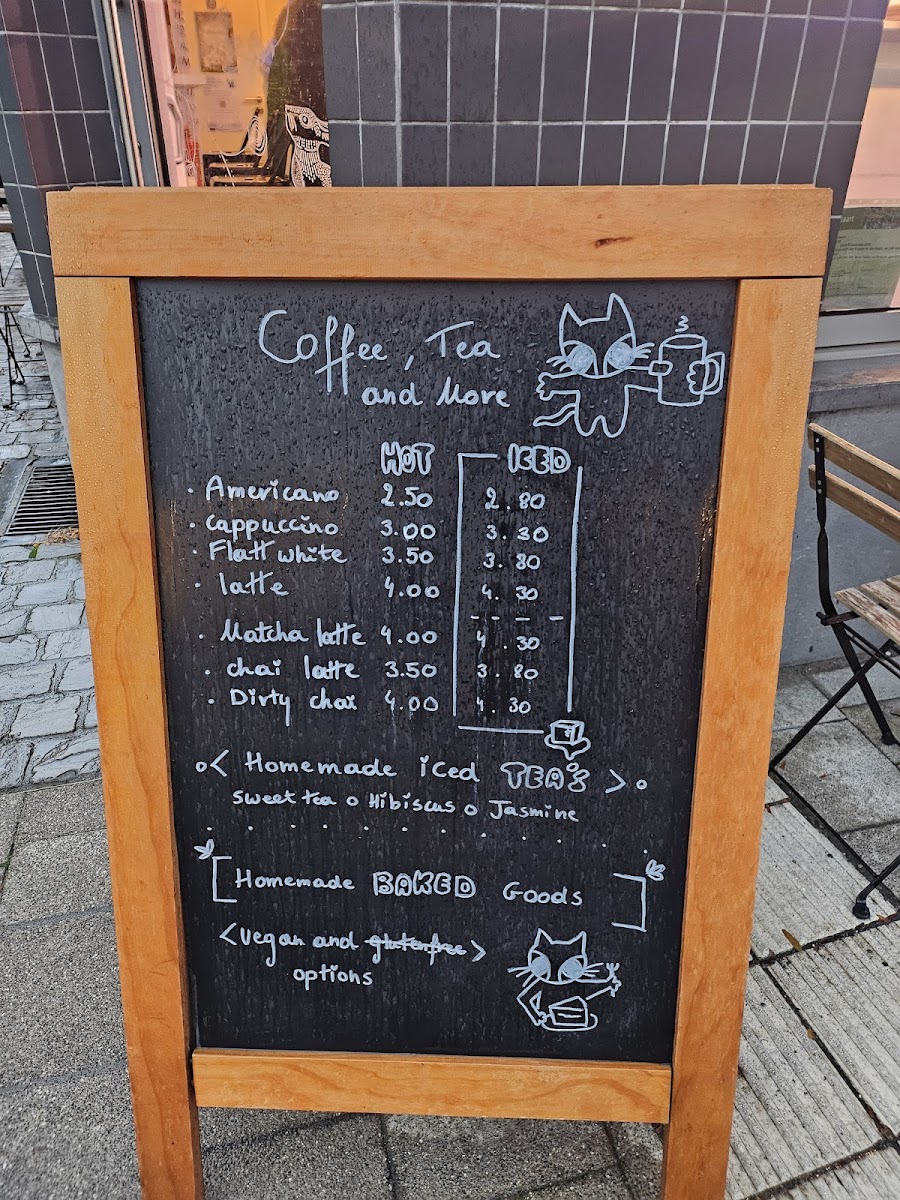 Coffee, Tea
and More
HOT ICED
· Americano 2.50 2.80
· cappuccino 3.00 3.30
· Flatt white 3.50 3.80
· latte 4.00 4.30
· Matcha latte 4.00 4.30
· chai latte 3.50 3.80
· Dirty chai 4.00 4.30
< Homemade iced TEA's >
sweet tea o Hibiscus o Jasmine
[Homemade BAKED Goods]
<vegan and glutenfree>
options